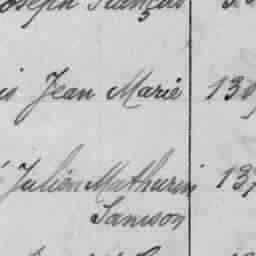 Joseph François
is Jean Marie 130
Julien Mathurin 137
Samson